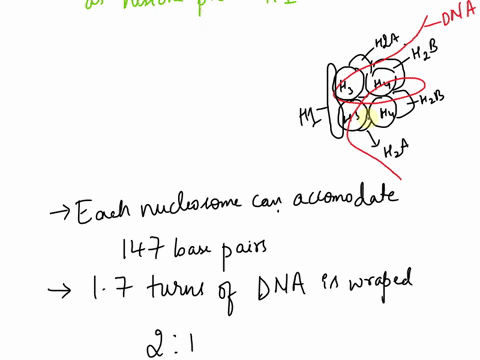 as histone H1
DNA
H2A
H2B
H3 H4
H2B
H1
H3 H4
H2A
→ Each nucleosome can accomodate
147 base pairs
→ 1.7 turns of DNA is wraped
2:1